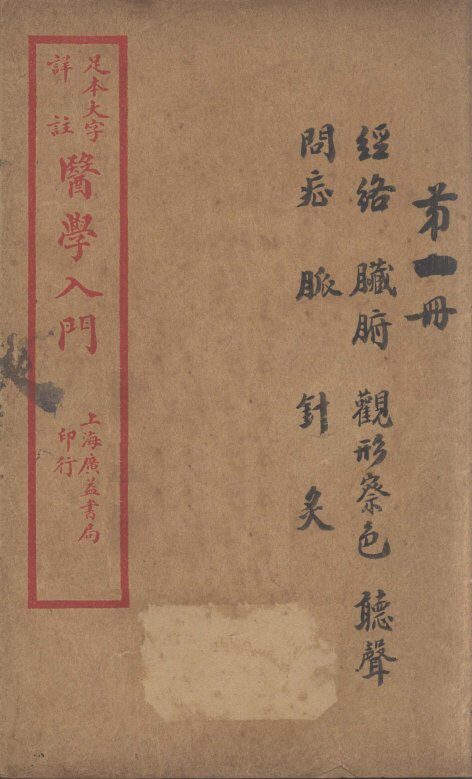 第一冊
經絡 臟腑 觀形察色 聽聲
問症 脈 針 灸
足本大字
詳註
醫學入門
上海廣益書局
印行